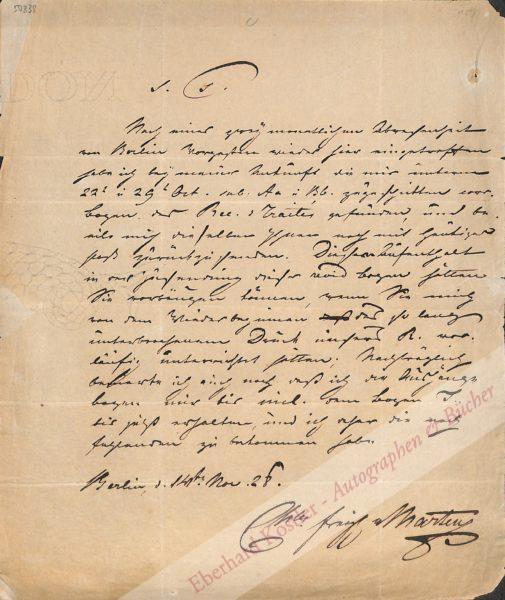 50838
s. T.
Nach einer zweymonatlichen Abwesenheit
von Berlin vorgestern wieder hier eingetroffen
habe ich bey meiner Ankunft die mir unterm
22t u 29t Oct. sub. Aa u Bb. zugeschickten
bogen des Rec. d Traités gefunden, und be-
eile mich dieselben Ihnen noch mit heutiger
Post zurückzusenden. Diesen Aufenthalt
in der Zusendung dieser bogen hätten
Sie vorbeugen können, wenn Sie mich
von dem Wiederbeginnen des so lang
unterbrochenen Druck unsers R. vor-
läufig unterrichtet hätten; Nachträglich
bemerke ich auch noch daß ich die Aushänge-
bogen nur bis incl. dem bogen
bis jetzt erhalten, und ich daher die noch
fehlenden zu bekommen habe.
Berlin, d. 14ten Nov. 28.
Ch frhr v Martens
Eberhard Köstler - Autographen & Bücher